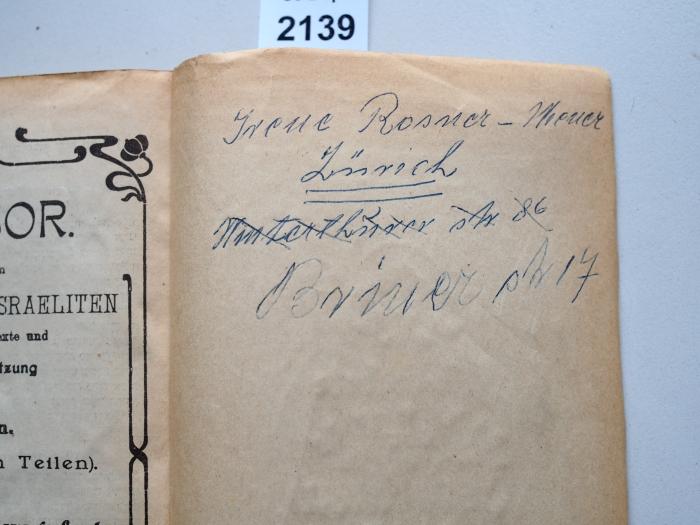 2139
Irene Rosner - Wiener
Zürich
Winterthurer str. 86
Briner str 17
SOR.
n
SRAELITEN
exte und
tzung
n.
n Teilen).